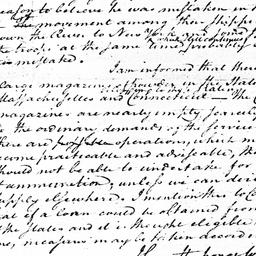 reason to believe he was mistaken in t
The movement among their Shippi
own the River to New York and
the troops at the same time, probably
is mistated.
I am informed that there
large magazines of powder in the States
Massachusettes and Connecticut — The C
magazines are nearly empty, scarcely
to the ordinary demands of the service
there are possible operations, which m
come practicable and adviseable, th
should not be able to undertake for
ammunition, unless we can deri
supply elsewhere. I mention this to C
that if a Loan could be obtained from
the States and it is thought eligible
mes, measures may be taken accord